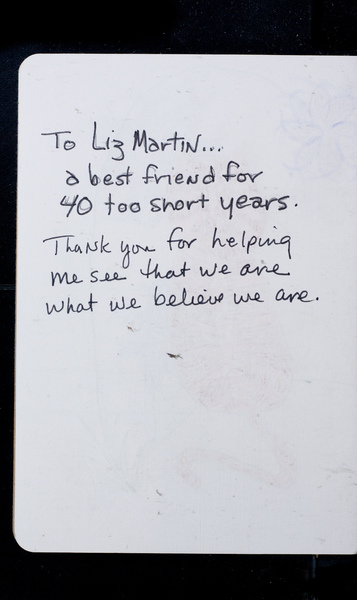 To Liz Martin...
a best friend for
40 too short years.
Thank you for helping
me see that we are
what we believe we are.